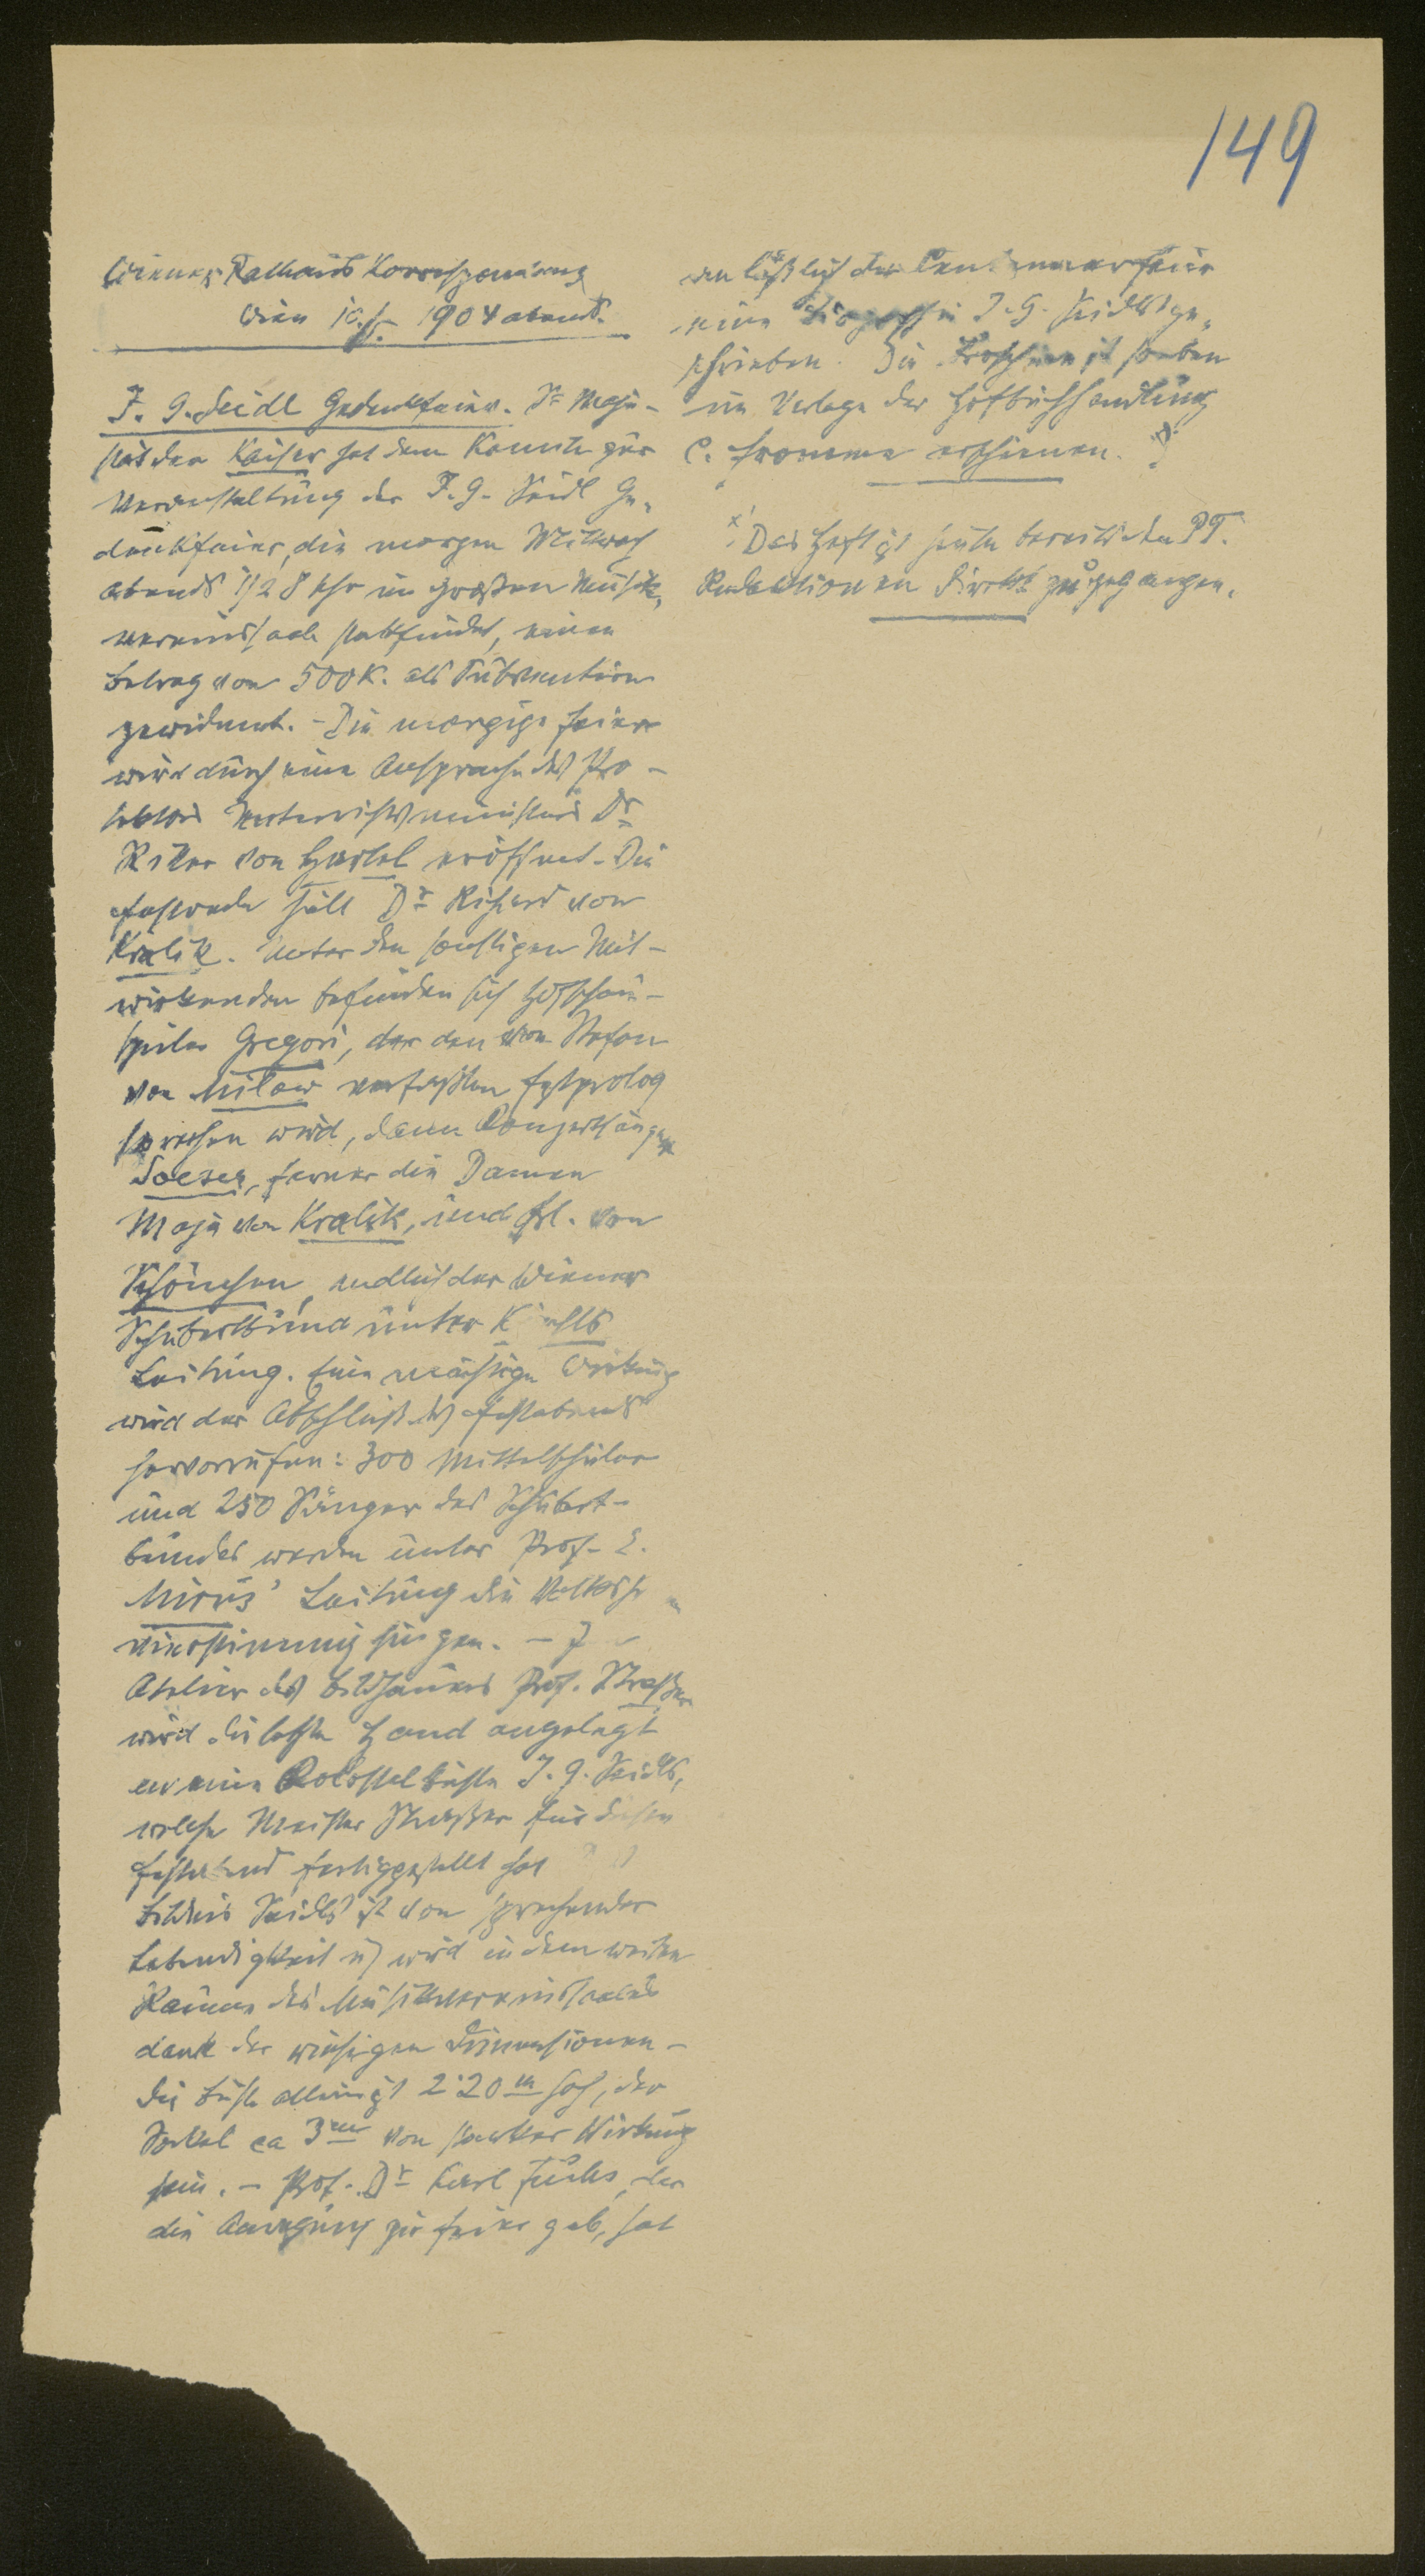 149
Wiener Rathaus Korrespondenz
Wien 10./5. 1904 abends.
J. G. Seidl Gedenkfeier. Se Maje-
stät der Kaiser hat dem Komite zur
Veranstaltung der J. G. Seidl Ge-
denkfeier, die morgen Mittwoch
abends 1/2 8 Uhr im großen Musik-
vereinssaale stattfindet, einen
Betrag von 500 K. als Subvention
gewidmet. - Die morgige Feier
wird durch eine Ansprache des Pro-
tektors Unterrichtsministers Dr
Ritter von Hartel eröffnet. Die
Festrede hält Dr Richard von
Kralik. Unter den sonstigen Mit-
wirkenden befinden sich Hofschau-
spieler Gregori, der den von Stefan
von Milow verfaßten Festprolog
sprechen wird, dann Konzertsänger
Soeser, ferner die Damen
Maja von Kralik, und Frl. von
Schönchen, endlich der Wiener
Schubertbund unter Kirchls
Leitung. Eine mächtige Wirkung
wird der Abschluß des Festabends
hervorrufen: 300 Mittelschüler
und 250 Sänger des Schubert-
bundes werden unter Prof.
Leitung die
vierstimmig singen. -
Atelier des Bildhauers Prof. Straßer
wird die letzte Hand angelegt
an eine Kolossalbüste J. G. Seidls,
welche Meister Straßer für diesen
Festabend fertiggestellt hat
Bildnis Seidls ist von sprechender
Lebendigkeit u) wird in dem weiten
Raume des Musikvereinssaales
dank der wuchtigen Dimensionen -
die Büste allein ist 2·20 m hoch, der
Sockel ca 3 m von starker Wirkung
sein. - Prof. Dr Karl Fuchs, der
die Anregung zur Feier gab, hat
anläßlich der Centenarfeier
eine Biografie J. G. Seidls ge-
schrieben. Die Broschüre ist soeben
im Verlage der Hofbuchhandlung
C. Fromme erschienen.
x) Das Heft ist heute bereits den PT.
Redaktionen direkt zugegangen.